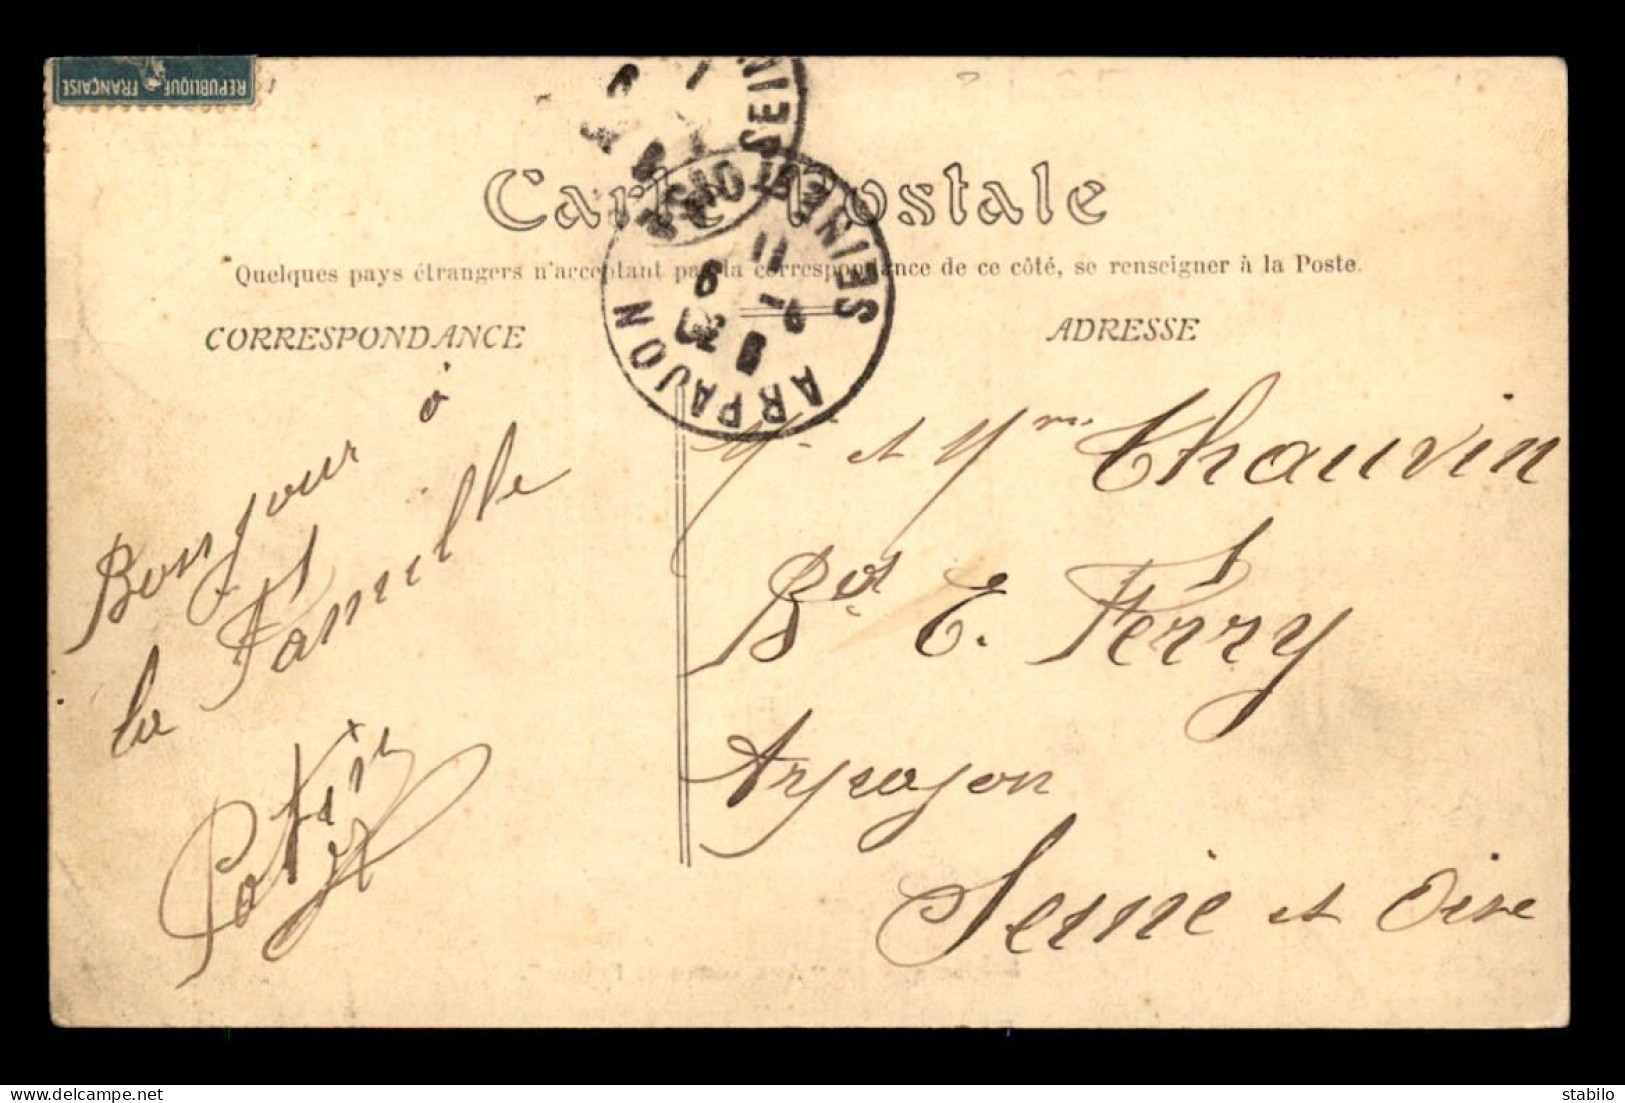 REPUBLIQUE FRANÇAISE
Carte Postale
Quelques pays étrangers n'acceptant pas la correspondance de ce côté, se renseigner à la Poste.
CORRESPONDANCE
ADRESSE
ARPAJON
SEINE ET OISE
9 30
9 -1
11
Bonjour à
la Famille
Mr et Mme Chauvin
Bd E. Ferry
Arpajon
Seine et Oise
stabilo
delcampe.net